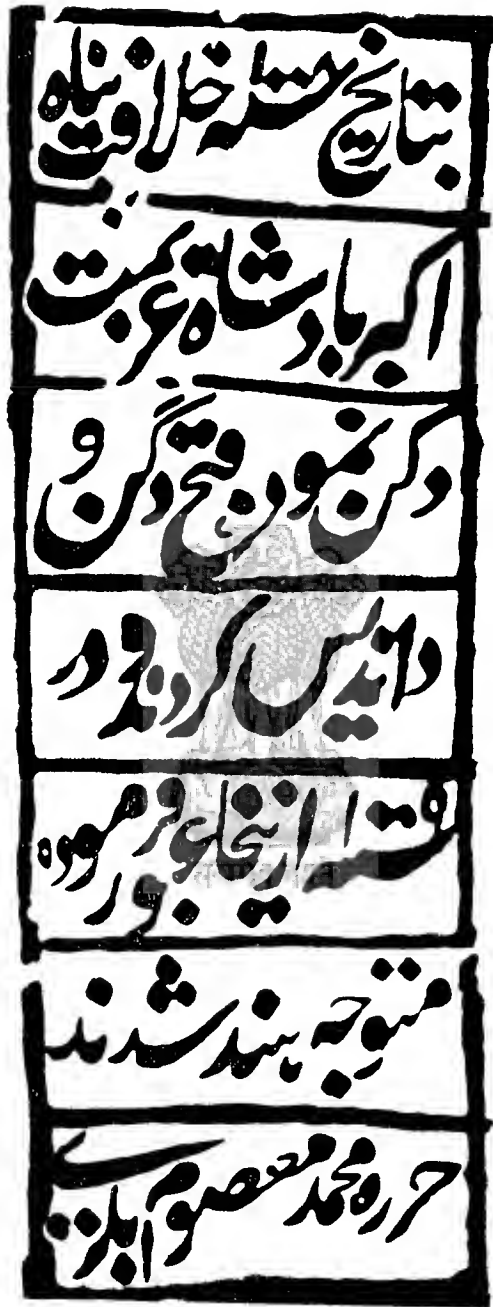 بتاریخ سنه خلافت پناه
اکبر بادشاه عزیمت
دکن نمود فتح دکن و
داندیس کردند و در
از ینجا عبور فرموده
متوجه هند شدند
حرره محمد معصوم